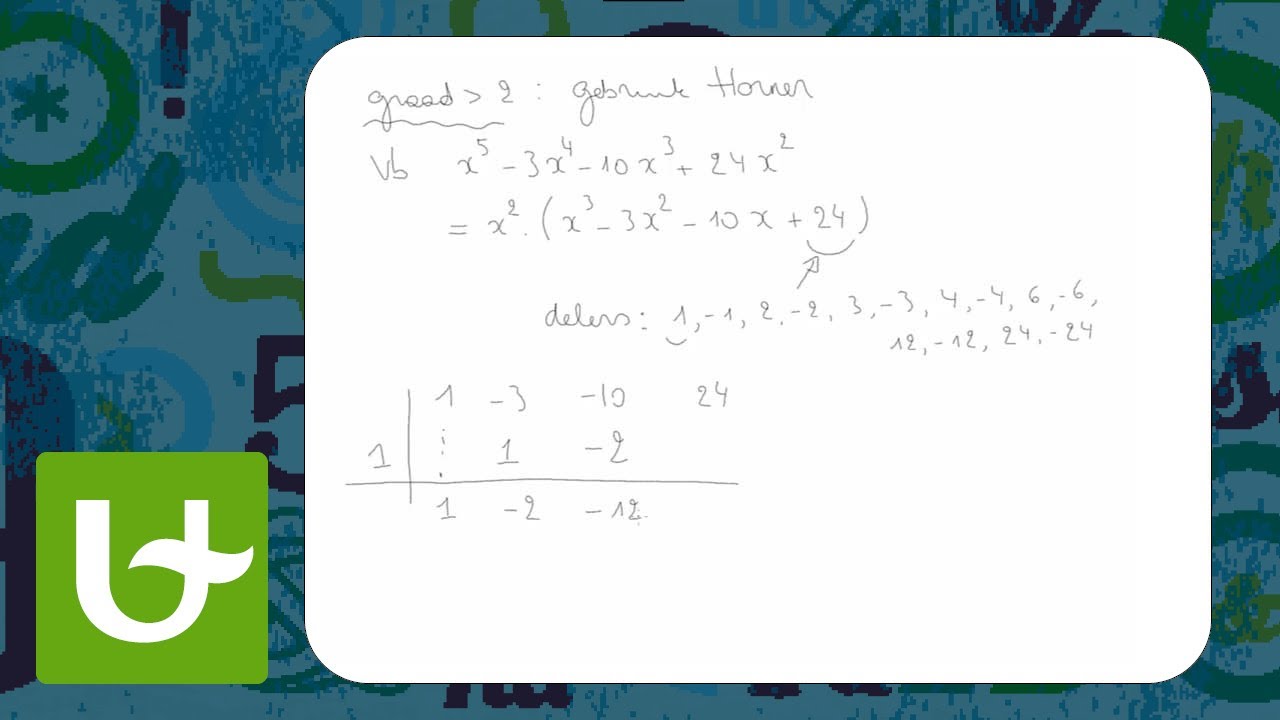 graad > 2 : gebruik Horner
Vb x⁵ - 3x⁴ - 10x³ + 24x²
= x² . (x³ - 3x² - 10x + 24)
delers: 1, -1, 2, -2, 3, -3, 4, -4, 6, -6,
12, -12, 24, -24
1 -3 -10 24
1 1 -2
1 -2 -12